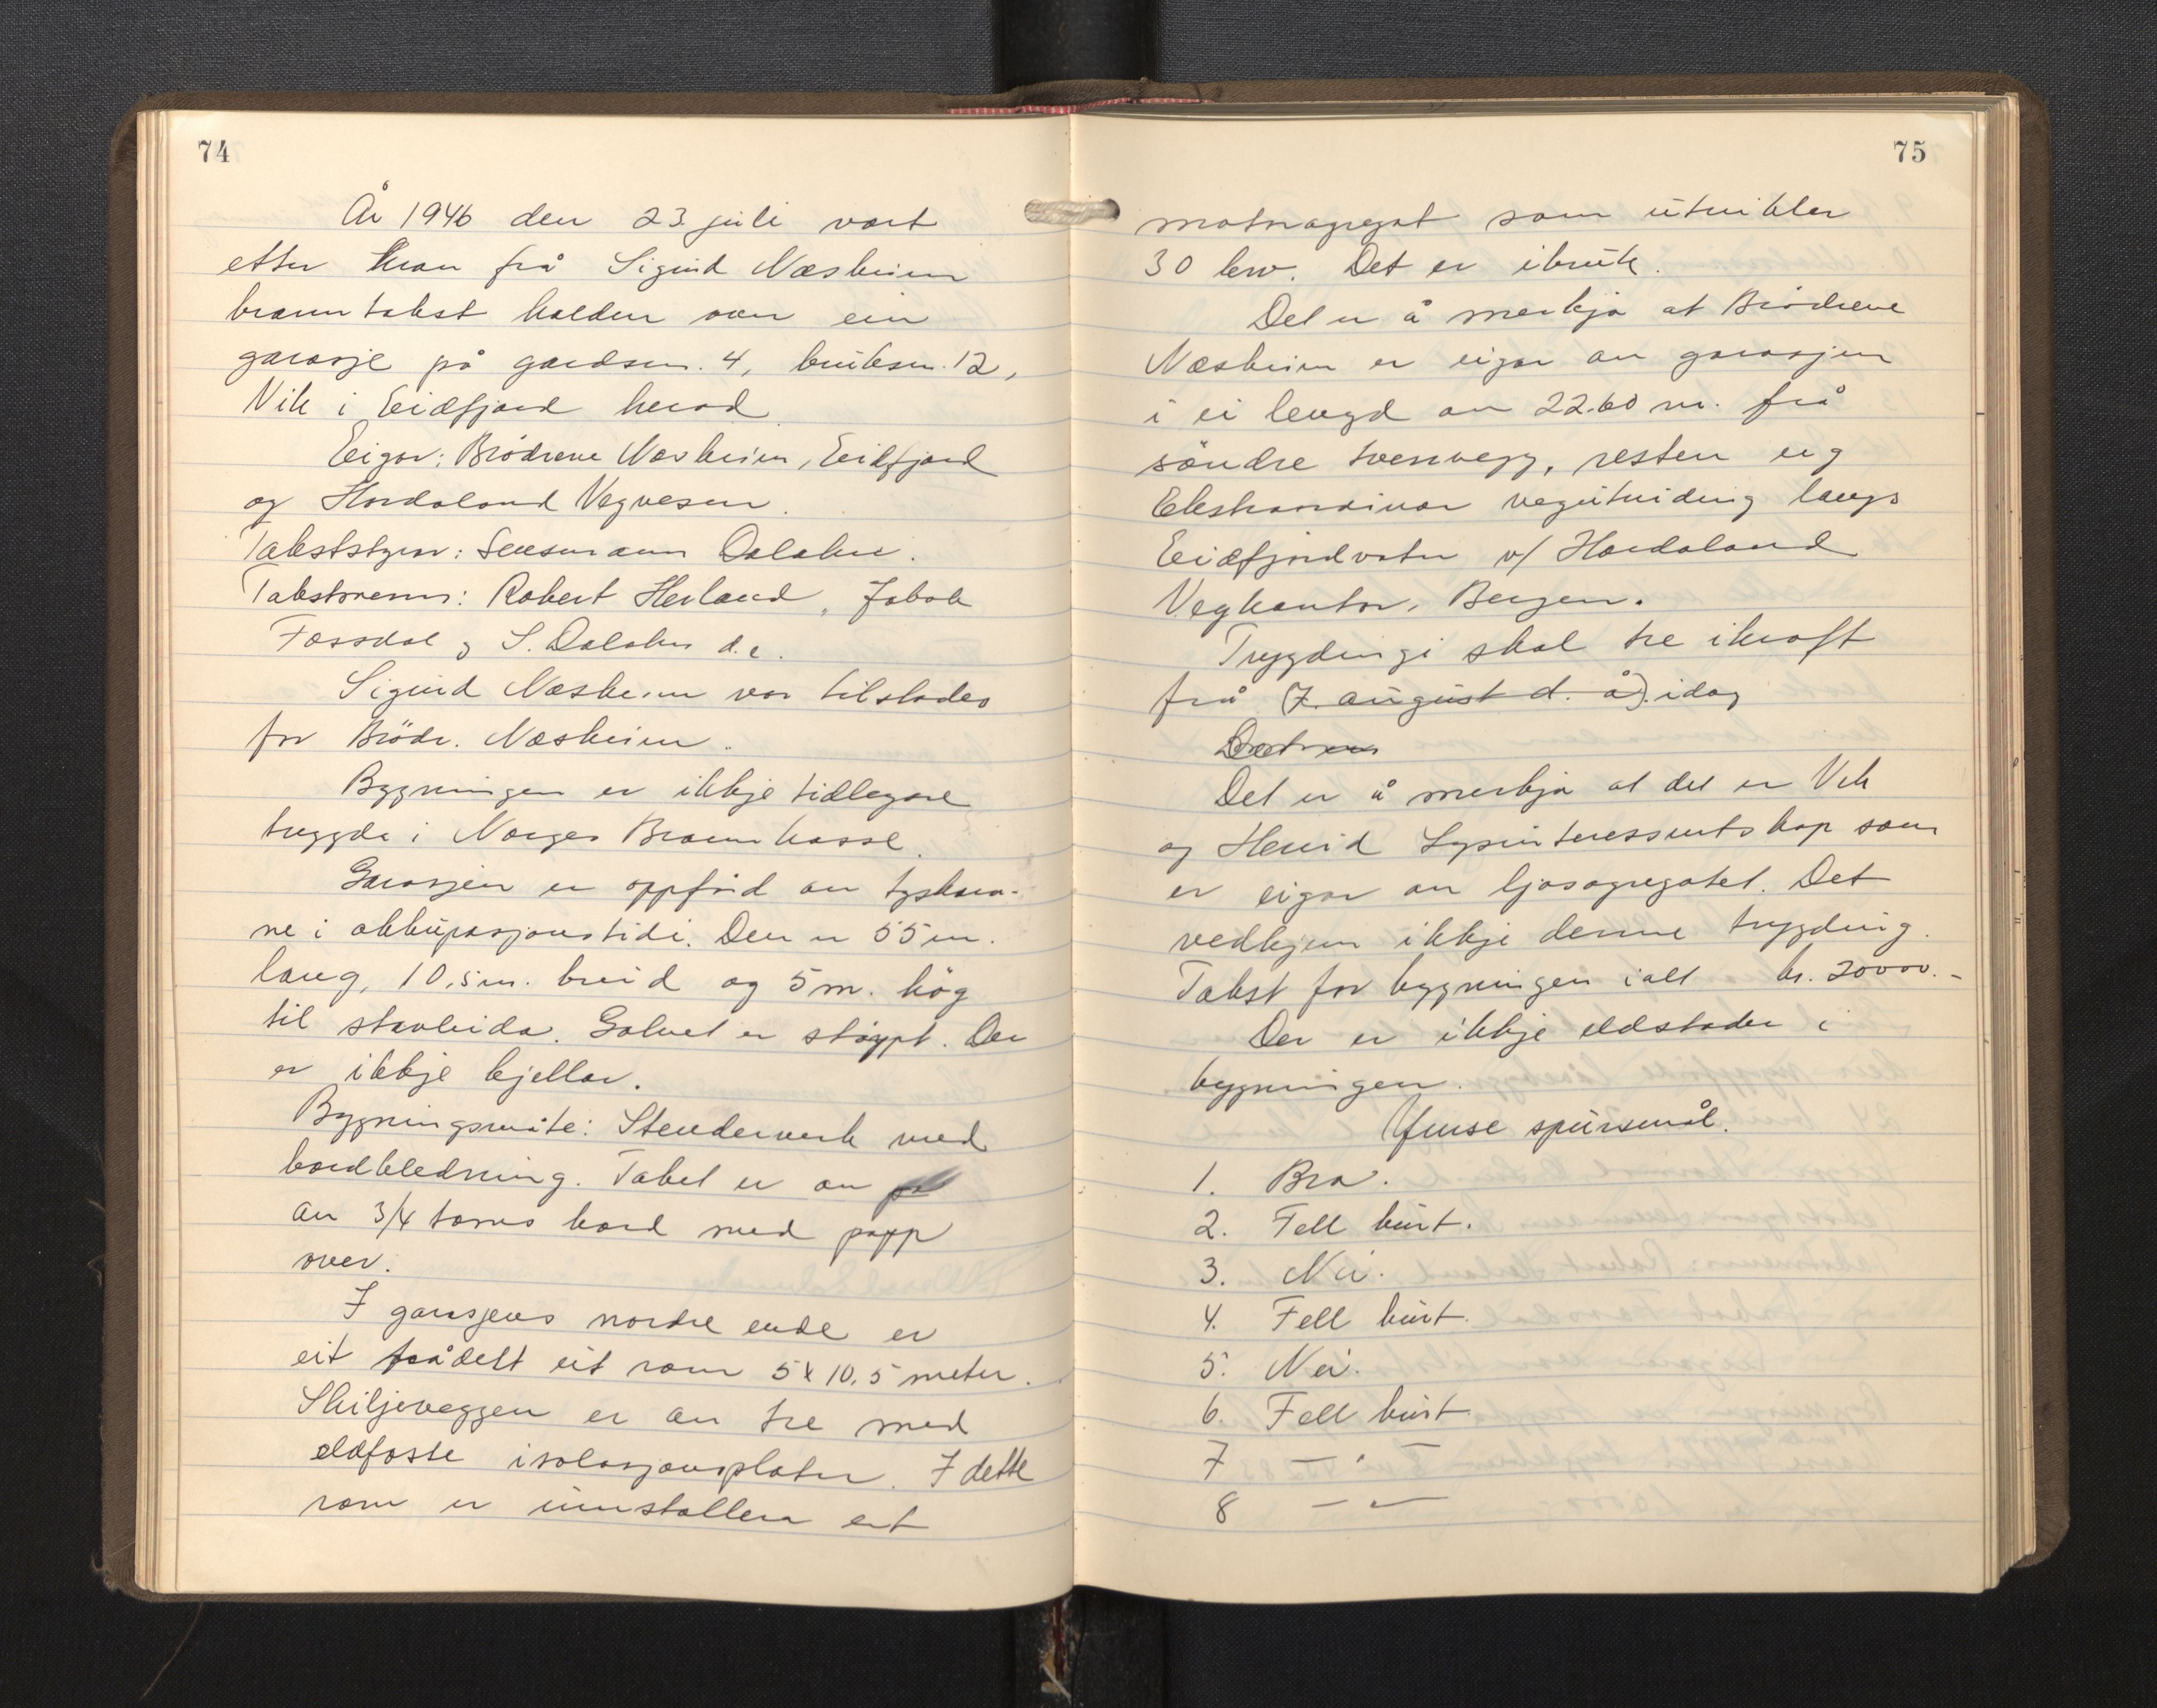 74
År 1946 den 23. juli vart
etter krav frå Sigurd Næsheim
branntakst halden over ein
garasje på gardsnr. 4, bruksnr. 12,
Vik i Eidfjord herad
Eigar: Brödrene Næsheim, Eidfjord
og Hordaland Vegvesen.
Takststyrar: Lensmann Dalaker.
Takstmenn: Robert Herland, Jakob
Fossdal og S. Dalaker d.e.
Sigurd Næsheim var tilstades
for Brödr. Næsheim.
Bygningen er ikkje tidlegare
trygda i Norges Brannkasse.
Garasjen er oppförd av tyskara-
ne i okkupasjonstidi. Den er 55 m.
lang, 10,5 m. breid og 5 m. hög
til stavleida. Golvet er stöypt. Der
er ikkje kjellar.
Bygningsmåte: Stenderverk med
bordkledning. Taket er av
av 3/4 toms bord med papp
over.
I garasjens nordre ende er
eit frådelt eit rom 5 x 10,5 meter.
Skiljeveggen er av tre med
eldfaste isolasjonsplater. I dette
rom er innstallera eit
75
motoragregat som utvikler
30 kw. Det er ibruk.
Det er å merkja at Brödrene
Næsheim er eigar av garasjen
i ei lengd av 22.60 m. frå
söndre tverrvegg, resten eig
Ekstraordinær vegutviding langs
Eidfjordvatn v/ Hordaland
Vegkontor, Bergen.
Trygdingi skal tre ikraft
frå (7. august d. å). idag
Det er å merkja at det er Vik
og Hereid Lysinteressentskap som
er eigar av ljosagregatet. Det
vedkjem ikkje denne trygding.
Takst for bygningen ialt kr. 20000.-
Der er ikkje eldstader i
bygningen.
Ymse spursmål.
1. Bra.
2. Fell burt.
3. Nei.
4. Fell burt.
5. Nei.
6. Fell burt.
7 — " —
8 — " —